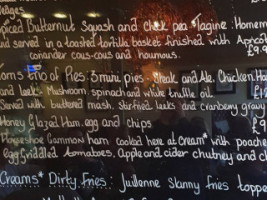 Wedges.
Spiced Butternut Squash and chick pea "Tagine": Homem
and served in a toasted tortilla basket finished with Apricot
coriander cous-cous and houmous. £9.9
Toms trio of Pies: 3 mini pies - Steak and Ale, Chicken, Ham
and Leek - Mushroom, spinach and white truffle oil. £12
Served with buttered mash, stirfried leeks and cranberry gravy
Honey Glazed Ham, egg and chips. £9
Ploughshare Gammon ham cooked here at Cream* with poache
egg, Griddled tomatoes, Apple and cider chutney and ch
Creams* Dirty Fries: Julienne skinny fries topped